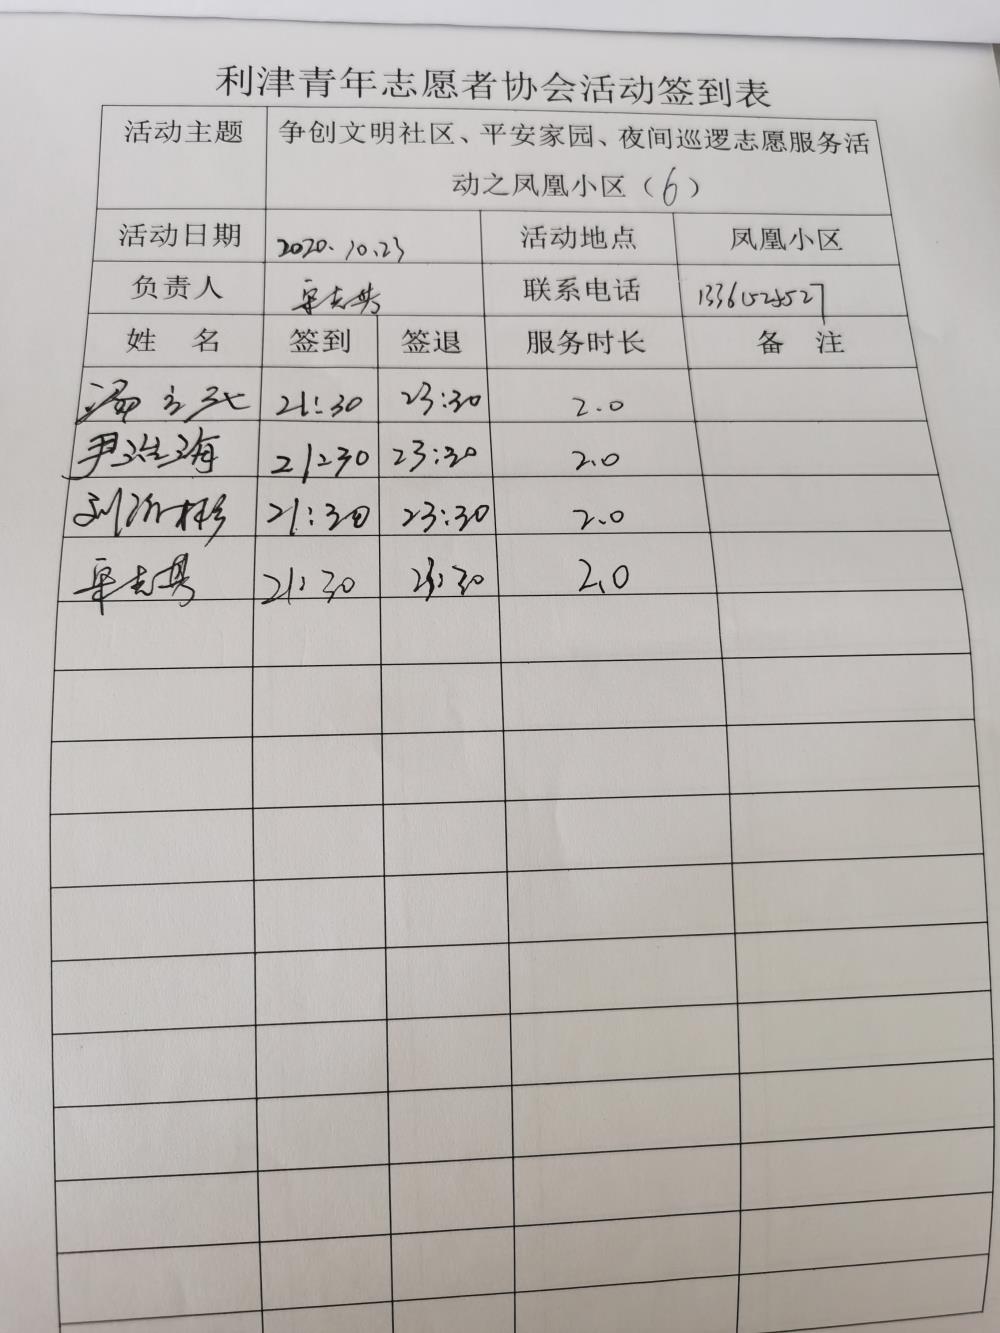 利津青年志愿者协会活动签到表
活动主题 争创文明社区、平安家园、夜间巡逻志愿服务活
动之凤凰小区(6)
活动日期 2020.10.23 活动地点 凤凰小区
负责人 联系电话
姓 名 签到 签退 服务时长 备 注
21:30 23:30 2.0
尹浩海 21:30 23:30 2.0
21:30 23:30 2.0
21:30 23:30 2.0